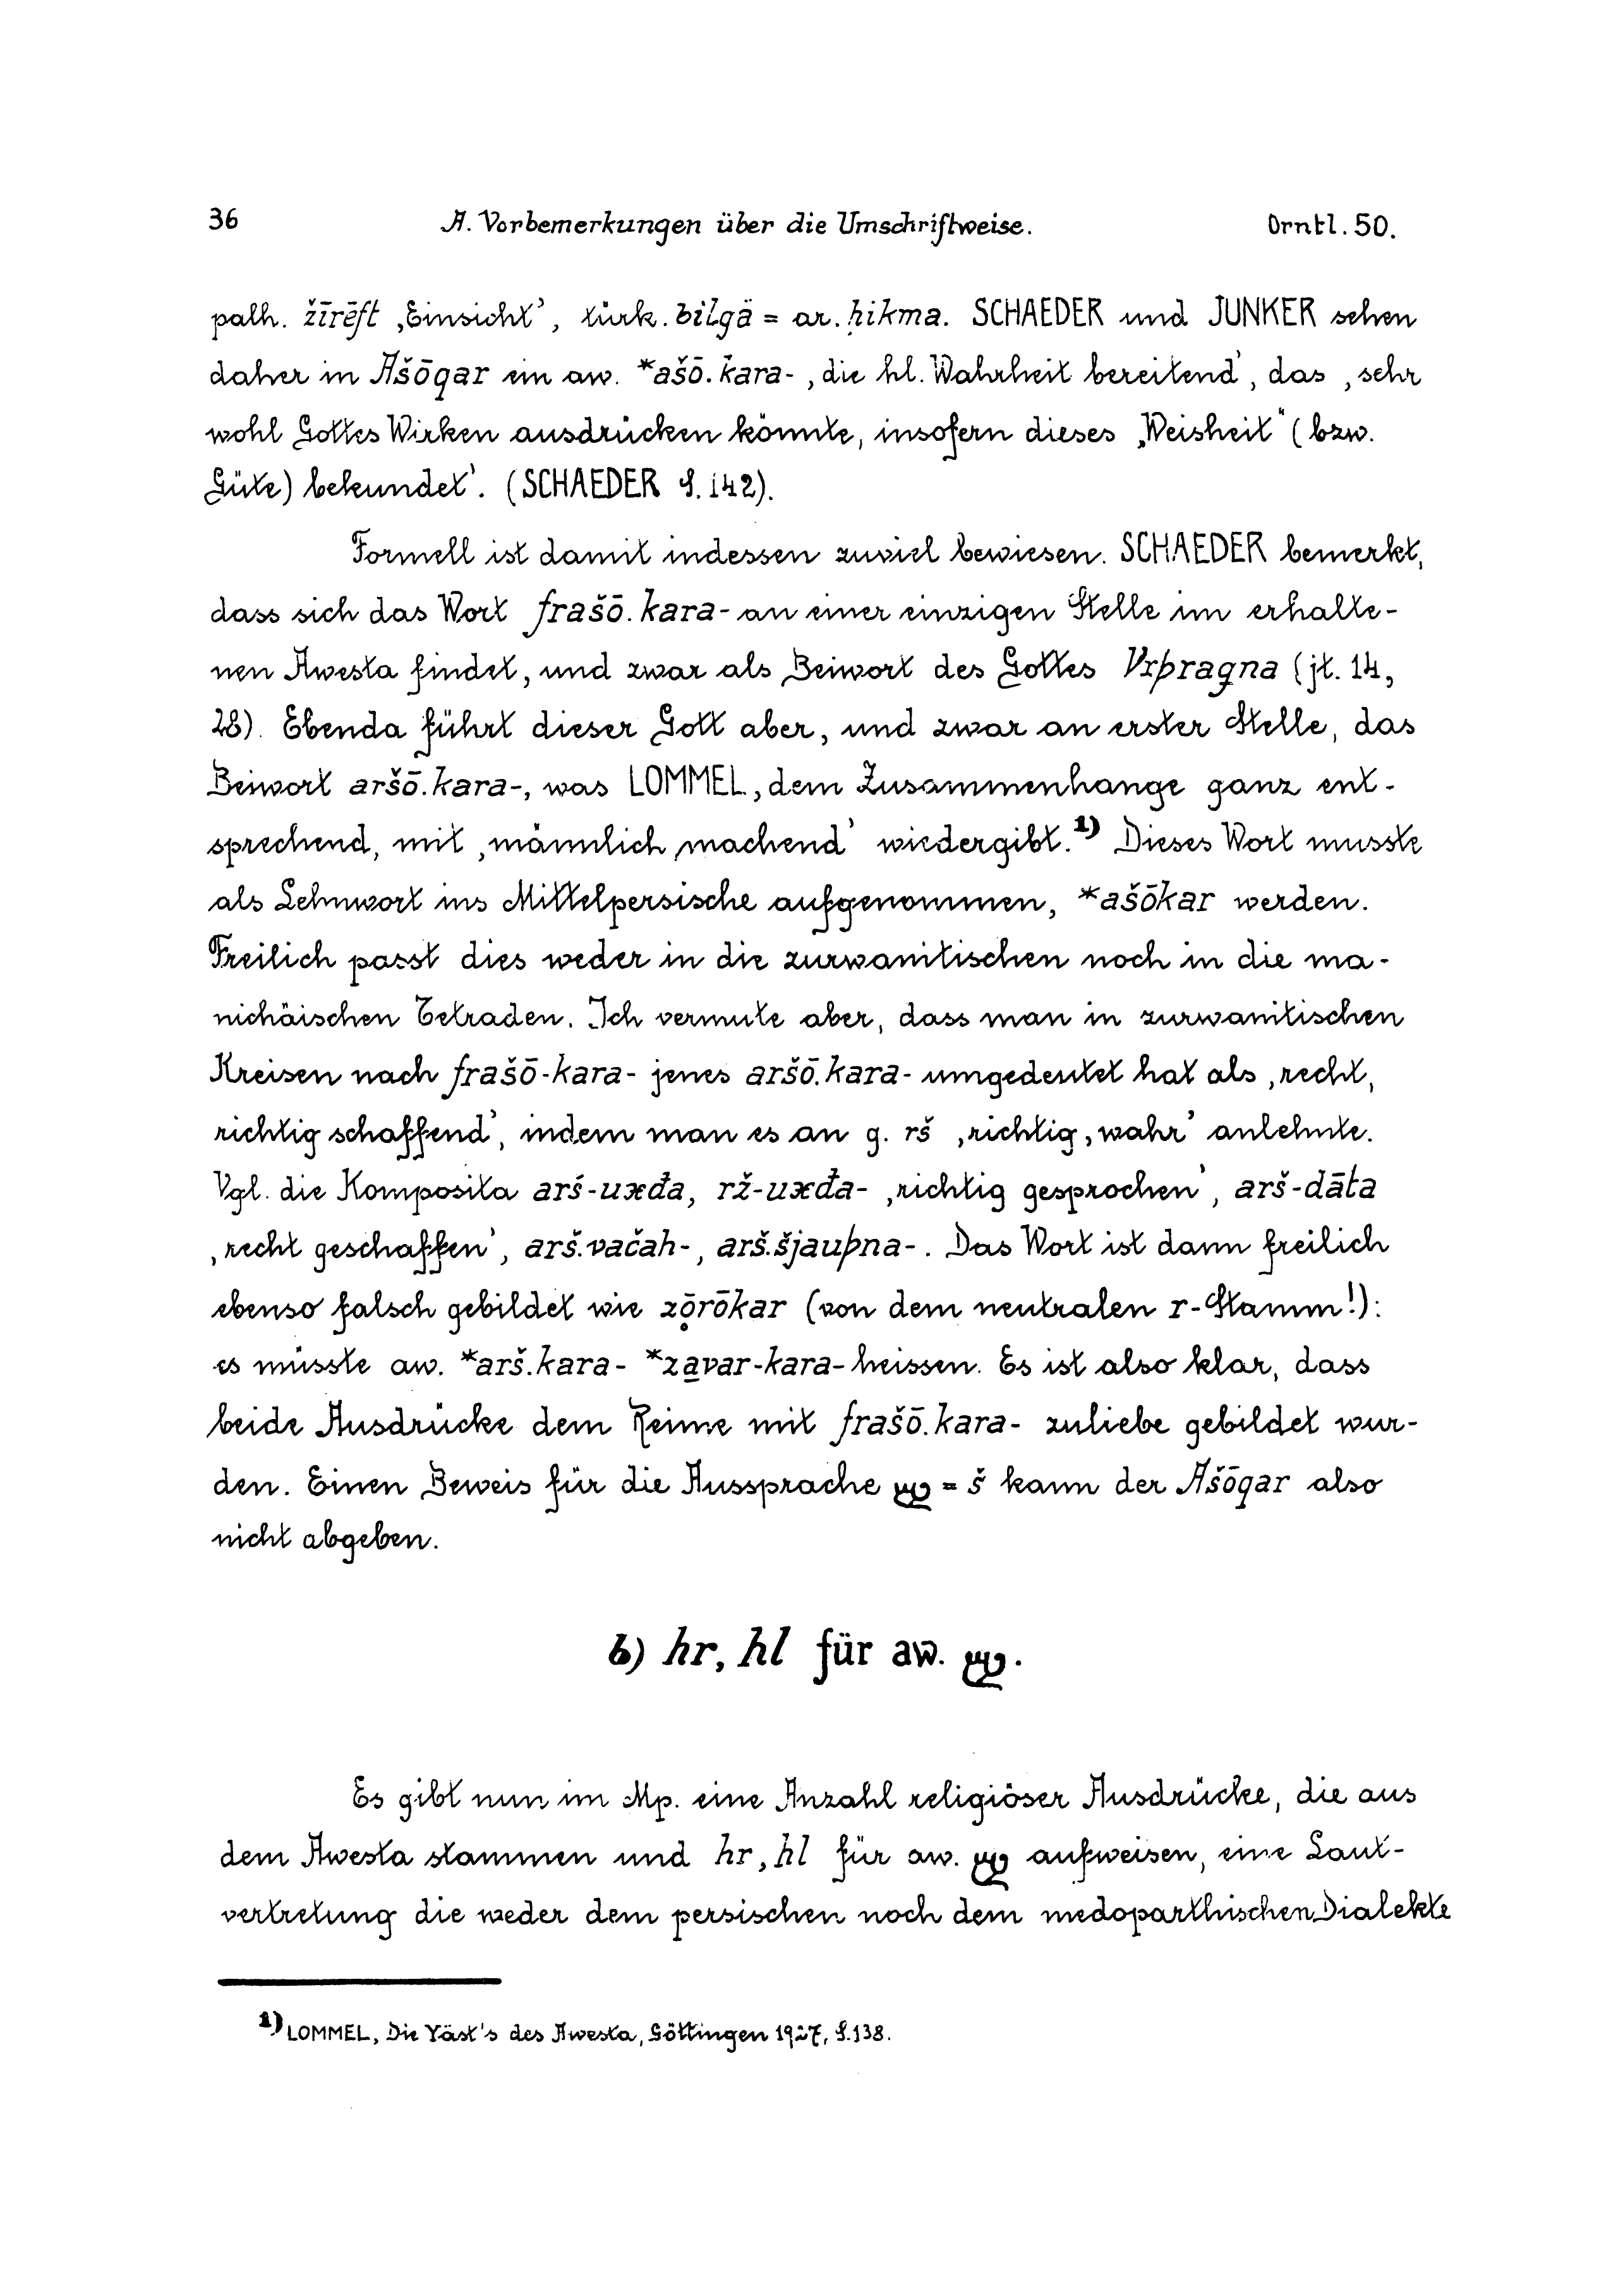 36 A. Vorbemerkungen über die Umschriftweise. Orntl. 50.
palh. žīrēft ‚Einsicht’, türk. bilgä = ar. ḥikma. SCHAEDER und JUNKER sehen
daher in Ašōqar ein aw. *ašō.kara- ‚die hl. Wahrheit bereitend’, das ‚sehr
wohl Gottes Wirken ausdrücken könnte, insofern dieses „Weisheit“ (bzw.
Güte) bekundet’. (SCHAEDER S. 142).
Formell ist damit indessen zuviel bewiesen. SCHAEDER bemerkt,
dass sich das Wort frašō.kara- an einer einzigen Stelle im erhalte-
nen Awesta findet, und zwar als Beiwort des Gottes Vrþragna (jt. 14,
28). Ebenda führt dieser Gott aber, und zwar an erster Stelle, das
Beiwort aršō.kara-, was LOMMEL, dem Zusammenhange ganz ent-
sprechend, mit ‚männlich machend’ wiedergibt.1) Dieses Wort musste
als Lehnwort ins Mittelpersische aufgenommen, *ašōkar werden.
Freilich passt dies weder in die zurwanitischen noch in die ma-
nichäischen Tetraden. Ich vermute aber, dass man in zurwanitischen
Kreisen nach frašō-kara- jenes aršō.kara- umgedeutet hat als ‚recht,
richtig schaffend’, indem man es an g. rš ‚richtig, wahr’ anlehnte.
Vgl. die Komposita arš-uxđa, rž-uxđa- ‚richtig gesprochen’, arš-dāta
‚recht geschaffen’, arš.vačah-, arš.šjauþna-. Das Wort ist dann freilich
ebenso falsch gebildet wie zọ̄rōkar (von dem neutralen r-Stamm!):
es müsste aw. *arš.kara- *za̱var-kara- heissen. Es ist also klar, dass
beide Ausdrücke dem Reime mit frašō.kara- zuliebe gebildet wur-
den. Einen Beweis für die Aussprache 𐬴 = š kann der Ašōqar also
nicht abgeben.
b) hr, hl für aw. 𐬴.
Es gibt nun im Mp. eine Anzahl religiöser Ausdrücke, die aus
dem Awesta stammen und hr, hl für aw. 𐬴 aufweisen, eine Laut-
vertretung die weder dem persischen noch dem medoparthischen Dialekte
1) LOMMEL, Die Yäšt's des Awesta, Göttingen 1927, S. 138.